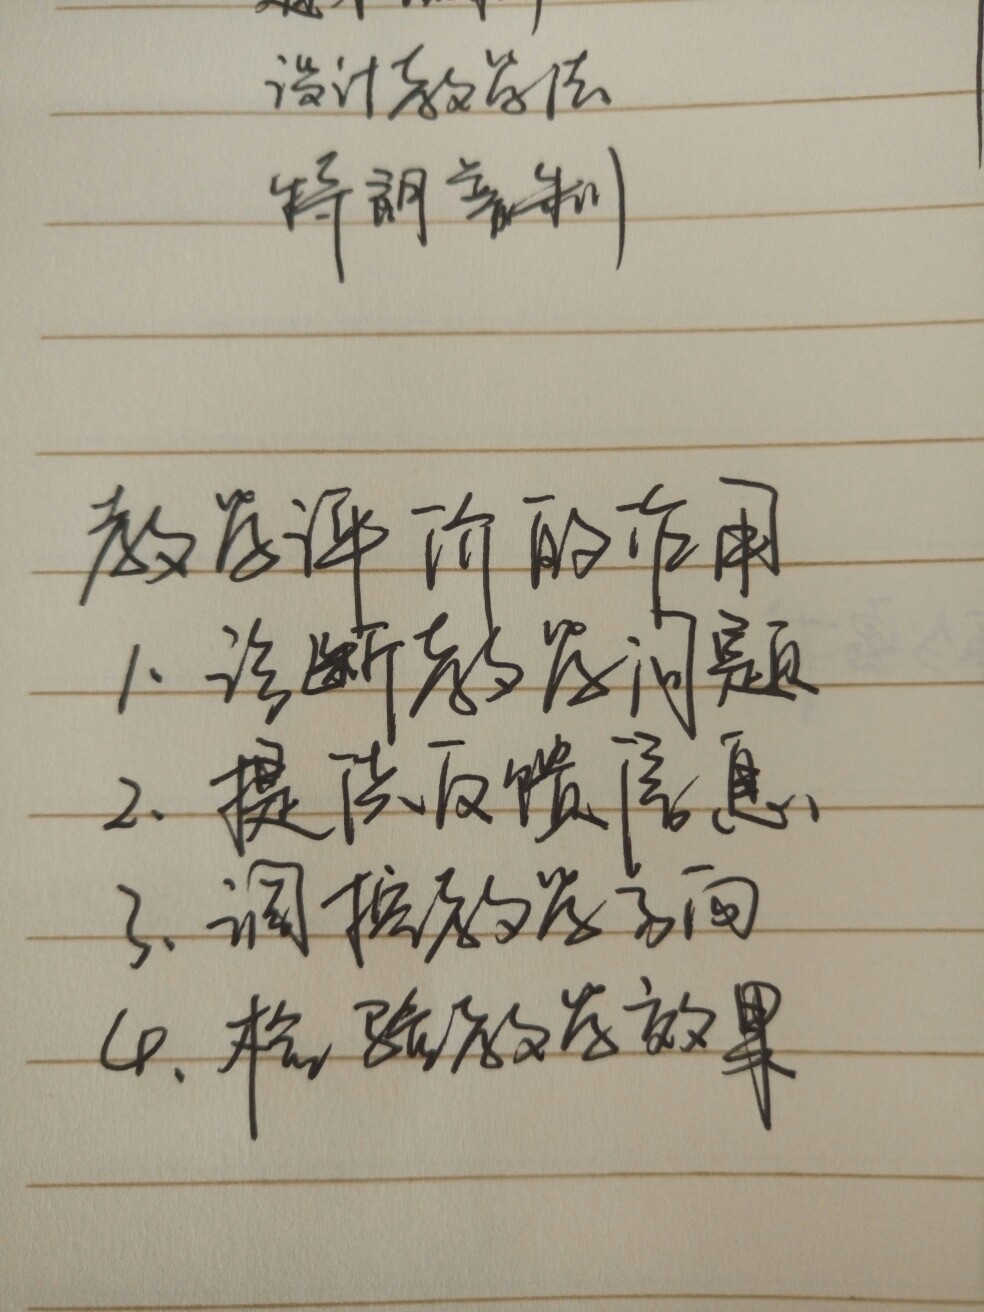 设计教学法
特朗普制)
教学评价的作用
1、诊断教学问题
2、提供反馈信息
3、调控教学方向
4、检验教学效果